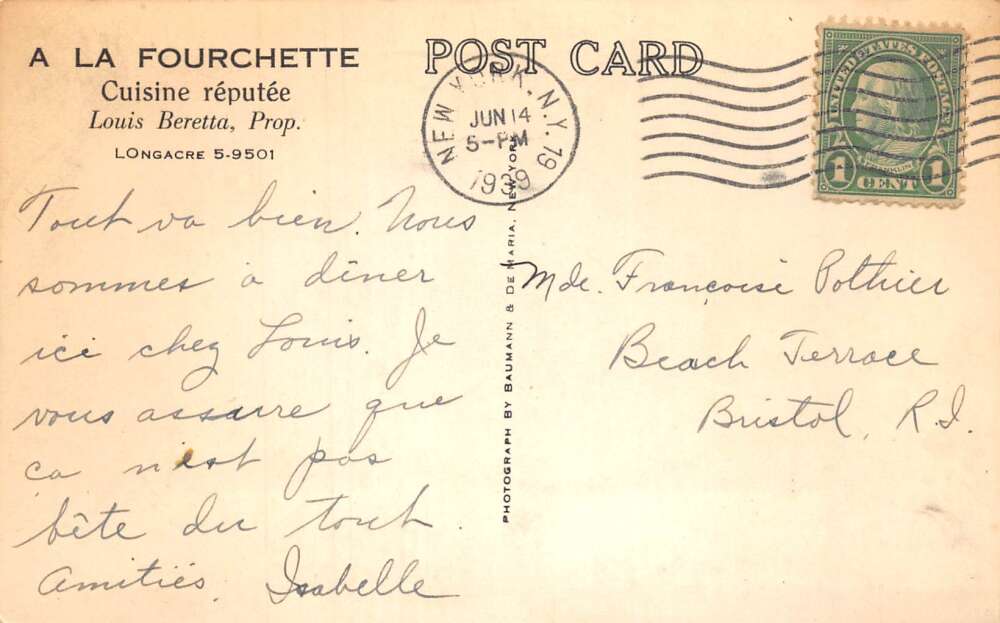 A LA FOURCHETTE
Cuisine réputée
Louis Beretta, Prop.
LOngacre 5-9501
POST CARD
NEW YORK, N.Y. 19
JUN 14
5-PM
1939
UNITED STATES POSTAGE
FRANKLIN
1 CENT 1
Tout va bien. Nous
sommes à dîner
ici chez Louis. Je
vous assure que
ca n'est pas
bête du tout.
Amitiés, Isabelle
PHOTOGRAPH BY BAUMANN & DE MARIA, NEW YORK
Mde. Françoise Pothier
Beach Terrace
Bristol, R.I.